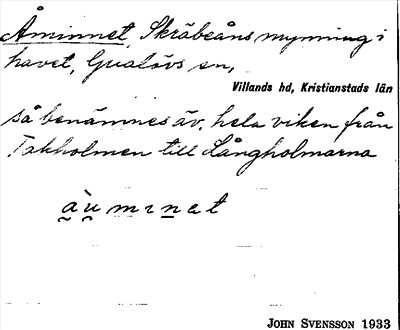 Åminnet, Skräbeåns mynning i
havet, Gualövs sn,
Villands hd, Kristianstads län
så benämnes äv. hela viken från
Takholmen till Långholmarna
a̯ù̯ mɪnet
JOHN SVENSSON 1933